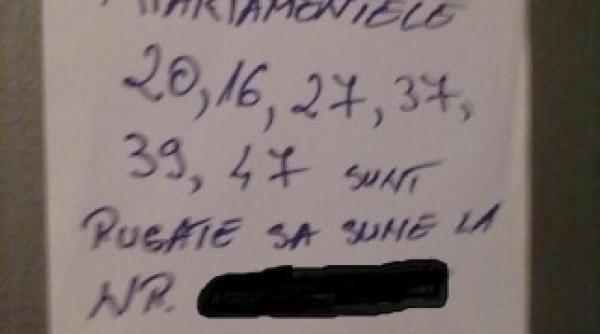 APARTAMENTELE
20, 16, 27, 37,
39, 47 SUNT
RUGATE SA SUNE LA
NR.